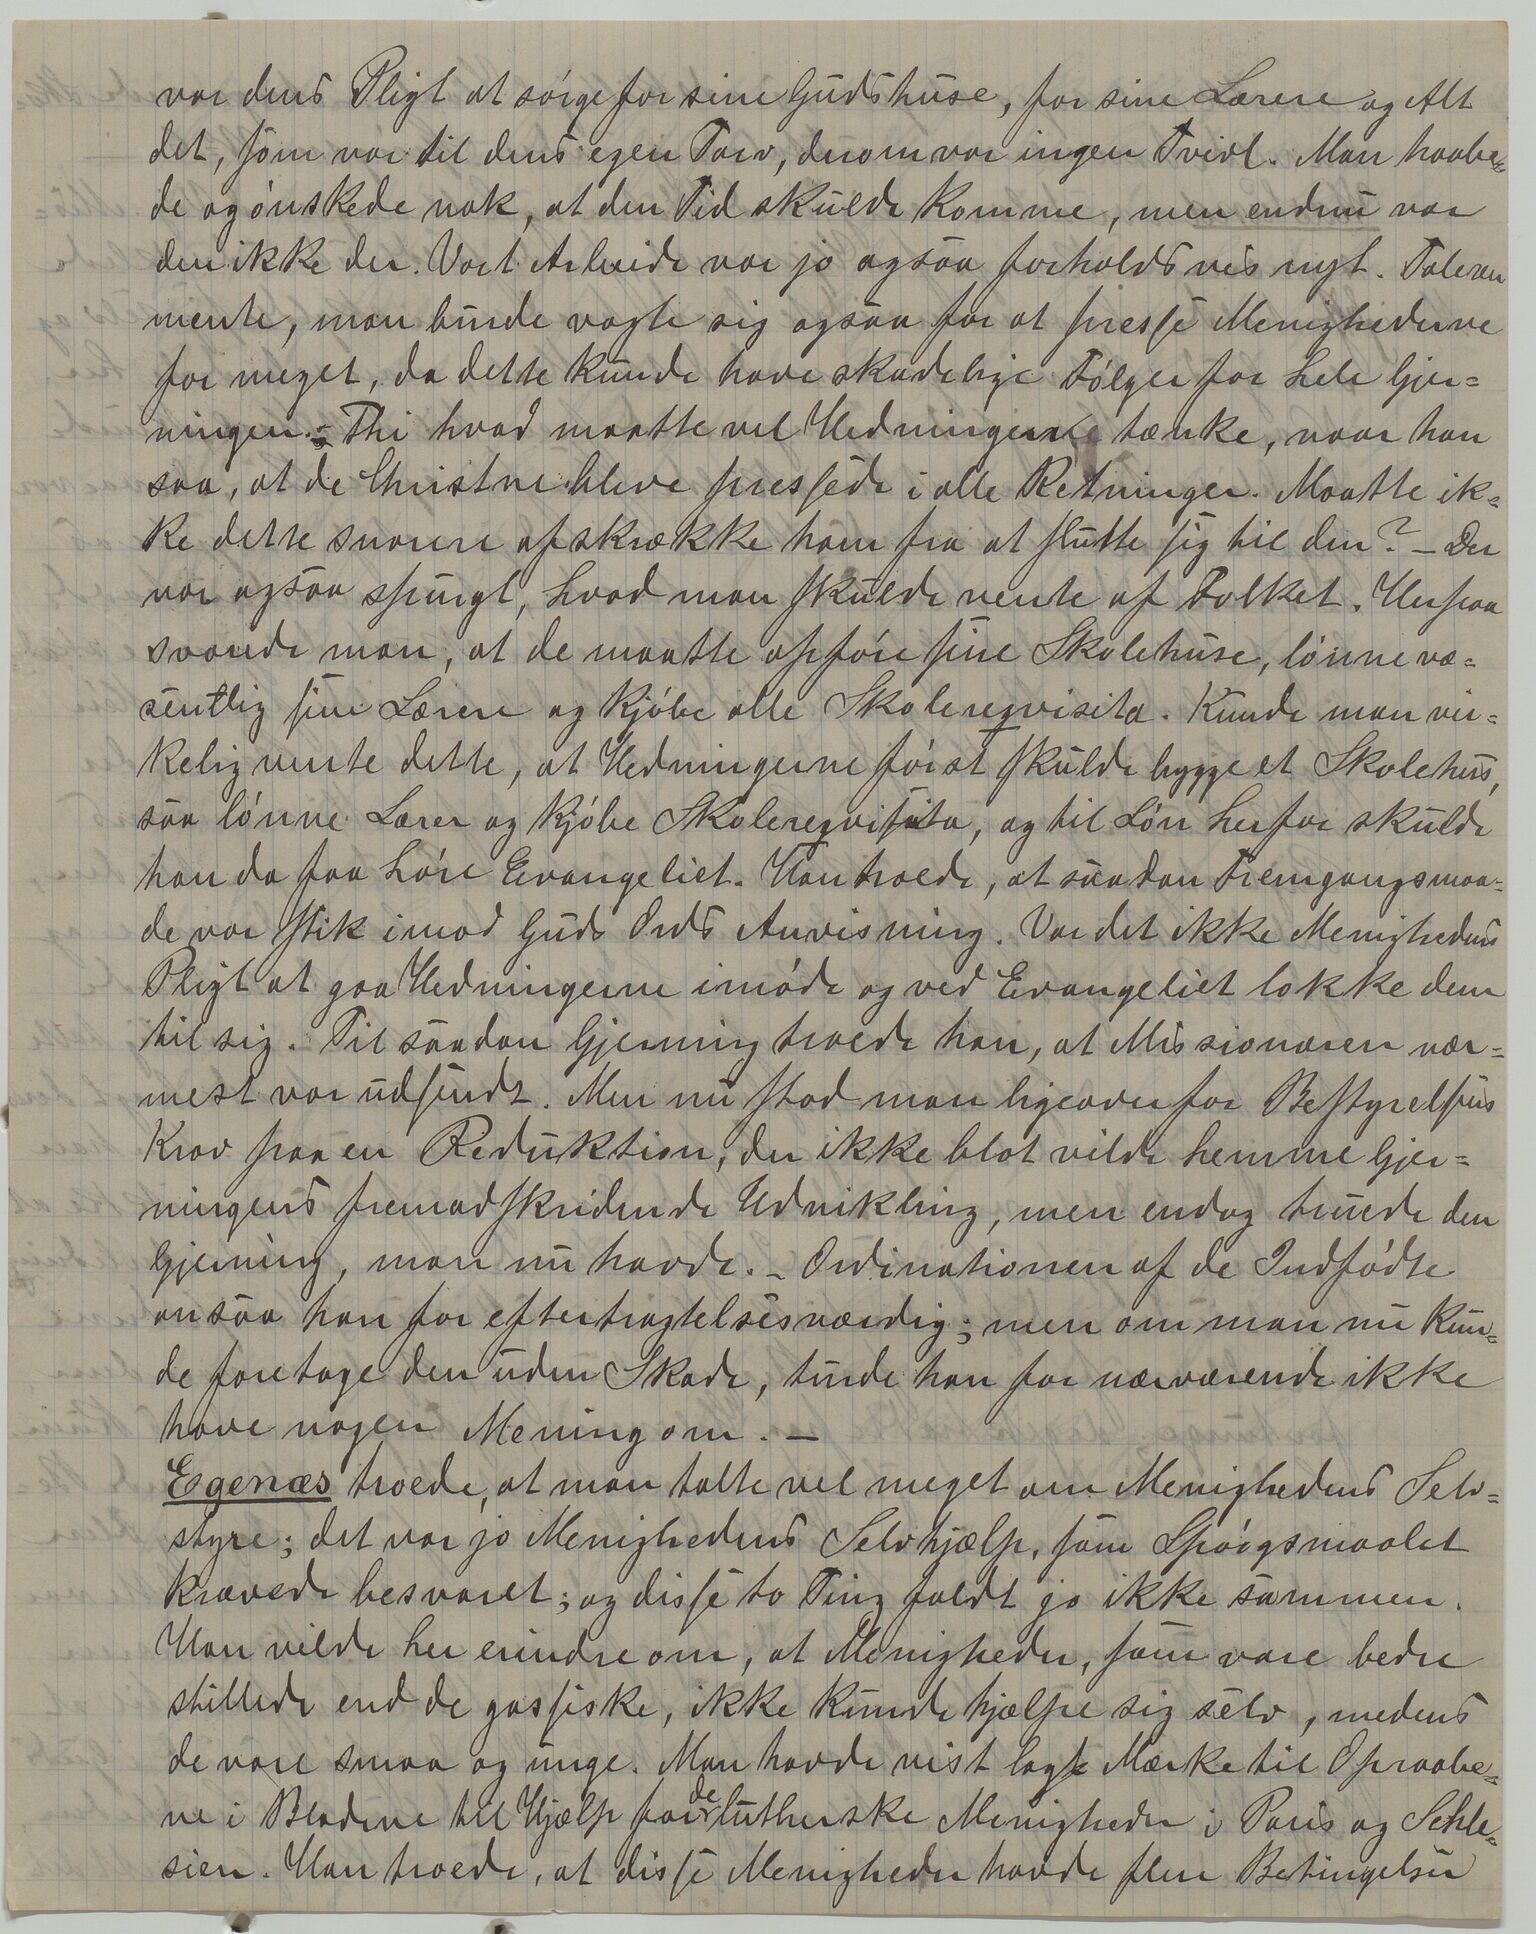 var dens Pligt at sørge for sine Gudshuse, for sine Lærere og Alt
det, som var til dens egen Tarv, derom var ingen Tvivl. Man haabe=
de og ønskede nok, at den Tid skulde komme, men endnu var
den ikke der. Vort Arbeide var jo ogsaa forholdsvis nyt. Taleren
mente, man burde vogte sig ogsaa for at presse Menighederne
for meget, da dette kunde have skadelige Følger for hele Gjer=
ningen. Thi hvad maatte vel Hedningerne tænke, naar han
saa, at de Christne bleve pressede i alle Retninger. Maatte ik=
ke dette snarere afskrække ham fra at slutte sig til den? – Der
var ogsaa spurgt, hvad man skulde vente af Folket. Herpaa
svarede man, at de maatte opføre sine Skolehuse, lønne væ=
sentlig sine Lærere og kjøbe alle Skolereqvisita. Kunde man vir=
kelig vente dette, at Hedningerne først skulde bygge et Skolehus,
saa lønne Lærer og kjøbe Skolereqvisita, og til Løn herfor skulde
han da faa høre Evangeliet. Han troede, at saadan Fremgangsmaa=
de var stik imod Guds Ords Anvisning. Var det ikke Menighedens
Pligt at gaa Hedningerne imøde og ved Evangeliet lokke dem
til sig. Til saadan Gjerning troede han, at Missionæren nær=
mest var udsendt. Men nu stod man ligeoverfor Bestyrelsens
Krav paa en Reduktion, der ikke blot vilde hemme Gjer=
ningens fremadskridende Udvikling, men endog truede den
Gjerning, man nu havde. – Ordinationen af de Indfødte
ansaa han for eftertragtelsesværdig; men om man nu kun=
de foretage den uden Skade, turde han for nærværende ikke
have nogen Mening om. –
Egenæs troede, at man talte vel meget om Menighedens Selv=
styre; det var jo Menighedens Selvhjælp, som Spørgsmaalet
krævede besvaret; og disse to Ting faldt jo ikke sammen.
Han vilde her erindre om, at Menigheder, som vare bedre
stillede end de gassiske, ikke kunde hjælpe sig selv, medens
de vare smaa og unge. Man havde vist lagt Mærke til Opraabe=
ne i Bladene til Hjælp for de lutherske Menigheder i Paris og Schle=
sien. Han troede, at disse Menigheder havde flere Betingelser